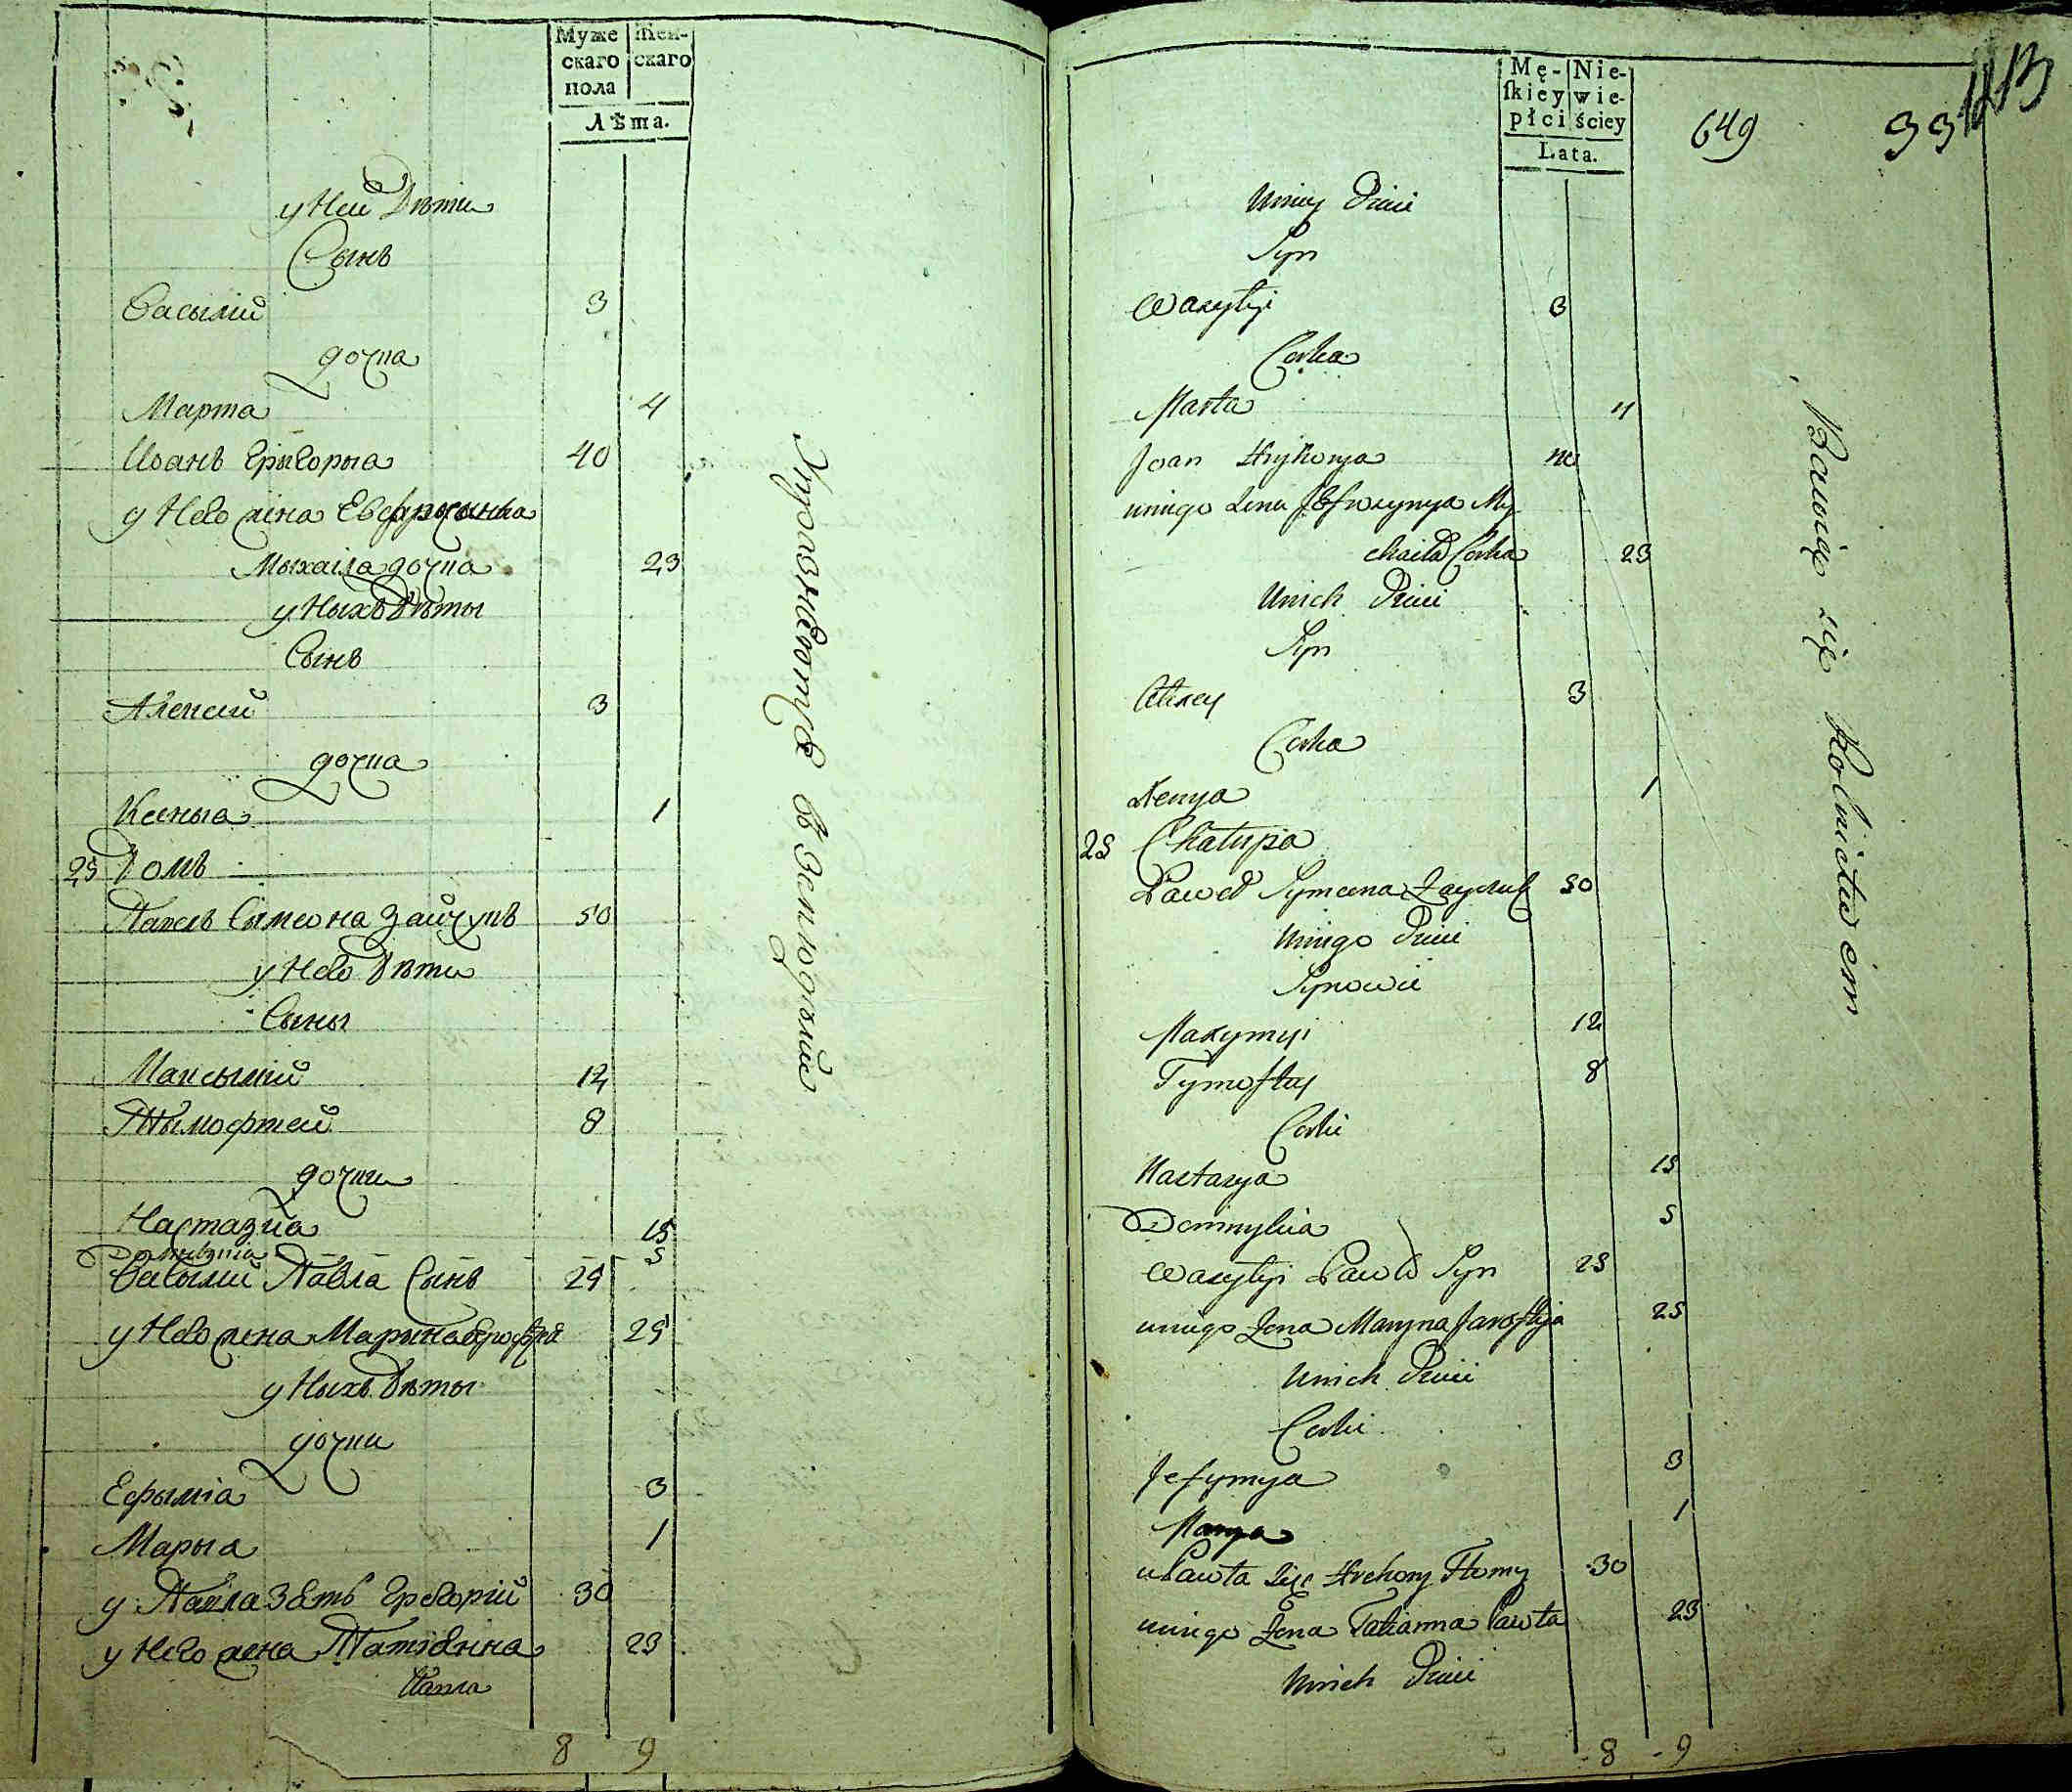 Муже
скаго
пола
Жен-
скаго
Лѣта.
у Ней Дѣти
Сынъ
Васылій 3
дочка
Марта 4
Иоанъ Григорыа 40
у Него жена Евфросиныа
Мыхаила дочка 23
у Ныхъ Дѣты
Сынъ
Алексій 3
дочка
Ксеныа 1
25 Домъ
Павелъ Сымеона Зайчукъ 50
у Него Дѣти
Сыны
Максымій 12
Тымофтей 8
дочки
Настазиа 15
Домныкиа 5
Васылій Павла Сынъ 25
у Него жена Марына 25
у Ныхъ Дѣты
дочки
Ефыміа 3
Марыа 1
у Павла Зять Григорій 30
у Него жена Татіанна 23
Павла
8 9
Упражняются въ Земледѣліи
Mę-
ſkiey
płci
Nie-
wie-
ściey
Lata.
649
33
113
Uniey Dzieci
Syn
Wasylyi 3
Corka
Marta 4
Joan Hryhorya 40
uniego Zena Jefrozynya My
chaiła Corka 23
Unich Dzieci
Syn
Alexey 3
Corka
Xenya 1
25 Chałupa
Paweł Symeona Zayczuk 50
Uniego Dzieci
Synowie
Maxymyi 12
Tymoftey 8
Corki
Nastazya 15
Domnykia 5
Wasylyi Pawła Syn 25
uniego Zona Maryna Jaroftyja 25
Unich Dzieci
Corki
Jefymya 3
Marya 1
uPawła Zięć Hrehory Tomy 30
uniego Zena Tatianna Pawła 23
Unich Dzieci
8 9
Bawią się Rolnictwem